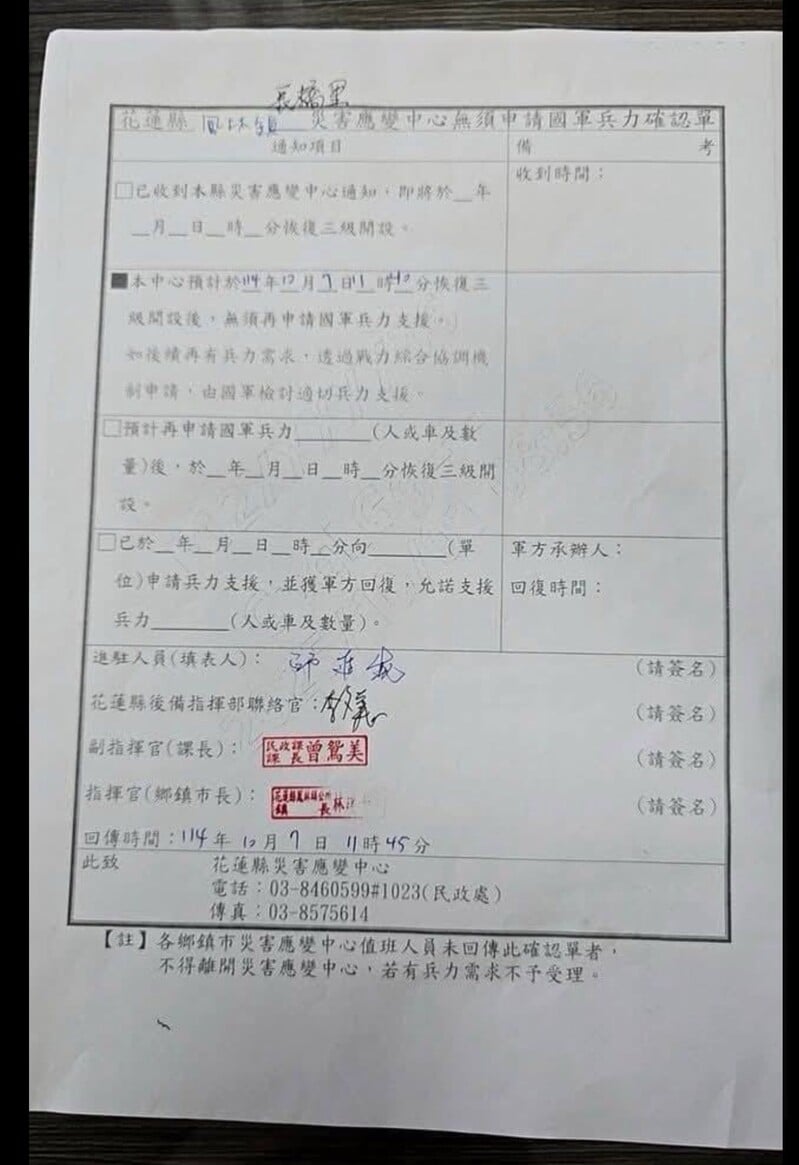 長橋里
花蓮縣 鳳林鎮 災害應變中心無須申請國軍兵力確認單
通知項目 備 考
□已收到本縣災害應變中心通知，即將於__年 收到時間：
__月__日__時__分恢復三級開設。
■本中心預計於114年10月7日11時40分恢復三
級開設後，無須再申請國軍兵力支援。
如後續再有兵力需求，透過戰力綜合協調機
制申請，由國軍檢討適切兵力支援。
□預計再申請國軍兵力________(人或車及數
量)後，於__年__月__日__時__分恢復三級開
設。
□已於__年__月__日__時__分向________(單 軍方承辦人：
位)申請兵力支援，並獲軍方回復，允諾支援 回復時間：
兵力________(人或車及數量)。
進駐人員(填表人)： (請簽名)
花蓮縣後備指揮部聯絡官： (請簽名)
副指揮官(課長)： 民政課課長 曾鴛美 (請簽名)
指揮官(鄉鎮市長)： 花蓮縣鳳林鎮公所鎮長 林 (請簽名)
回傳時間：114年10月7日11時45分
此致 花蓮縣災害應變中心
電話：03-8460599#1023(民政處)
傳真：03-8575614
【註】各鄉鎮市災害應變中心值班人員未回傳此確認單者，
不得離開災害應變中心，若有兵力需求不予受理。